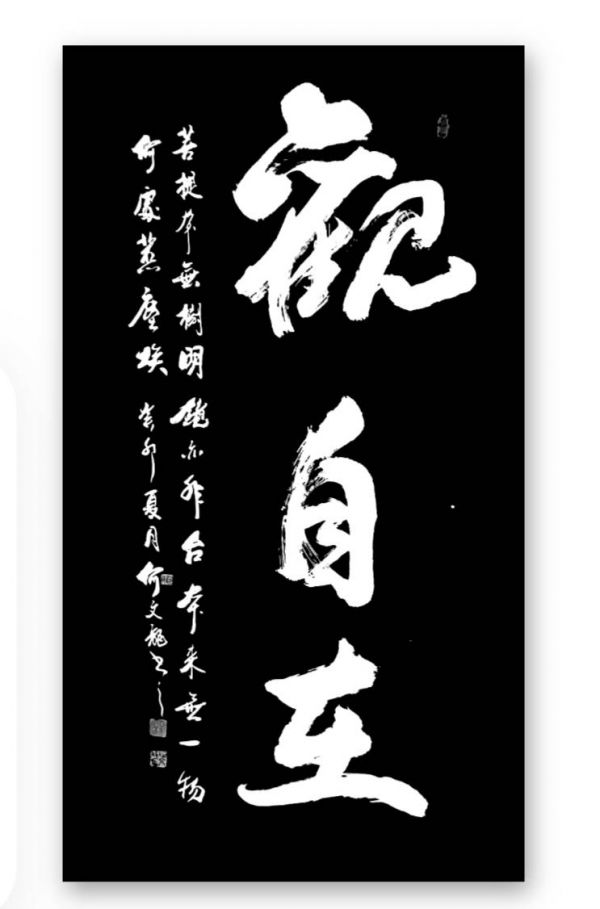 觀自在
菩提本無樹明鏡亦非台本来無一物
何處惹塵埃 癸卯夏月何文龍書之